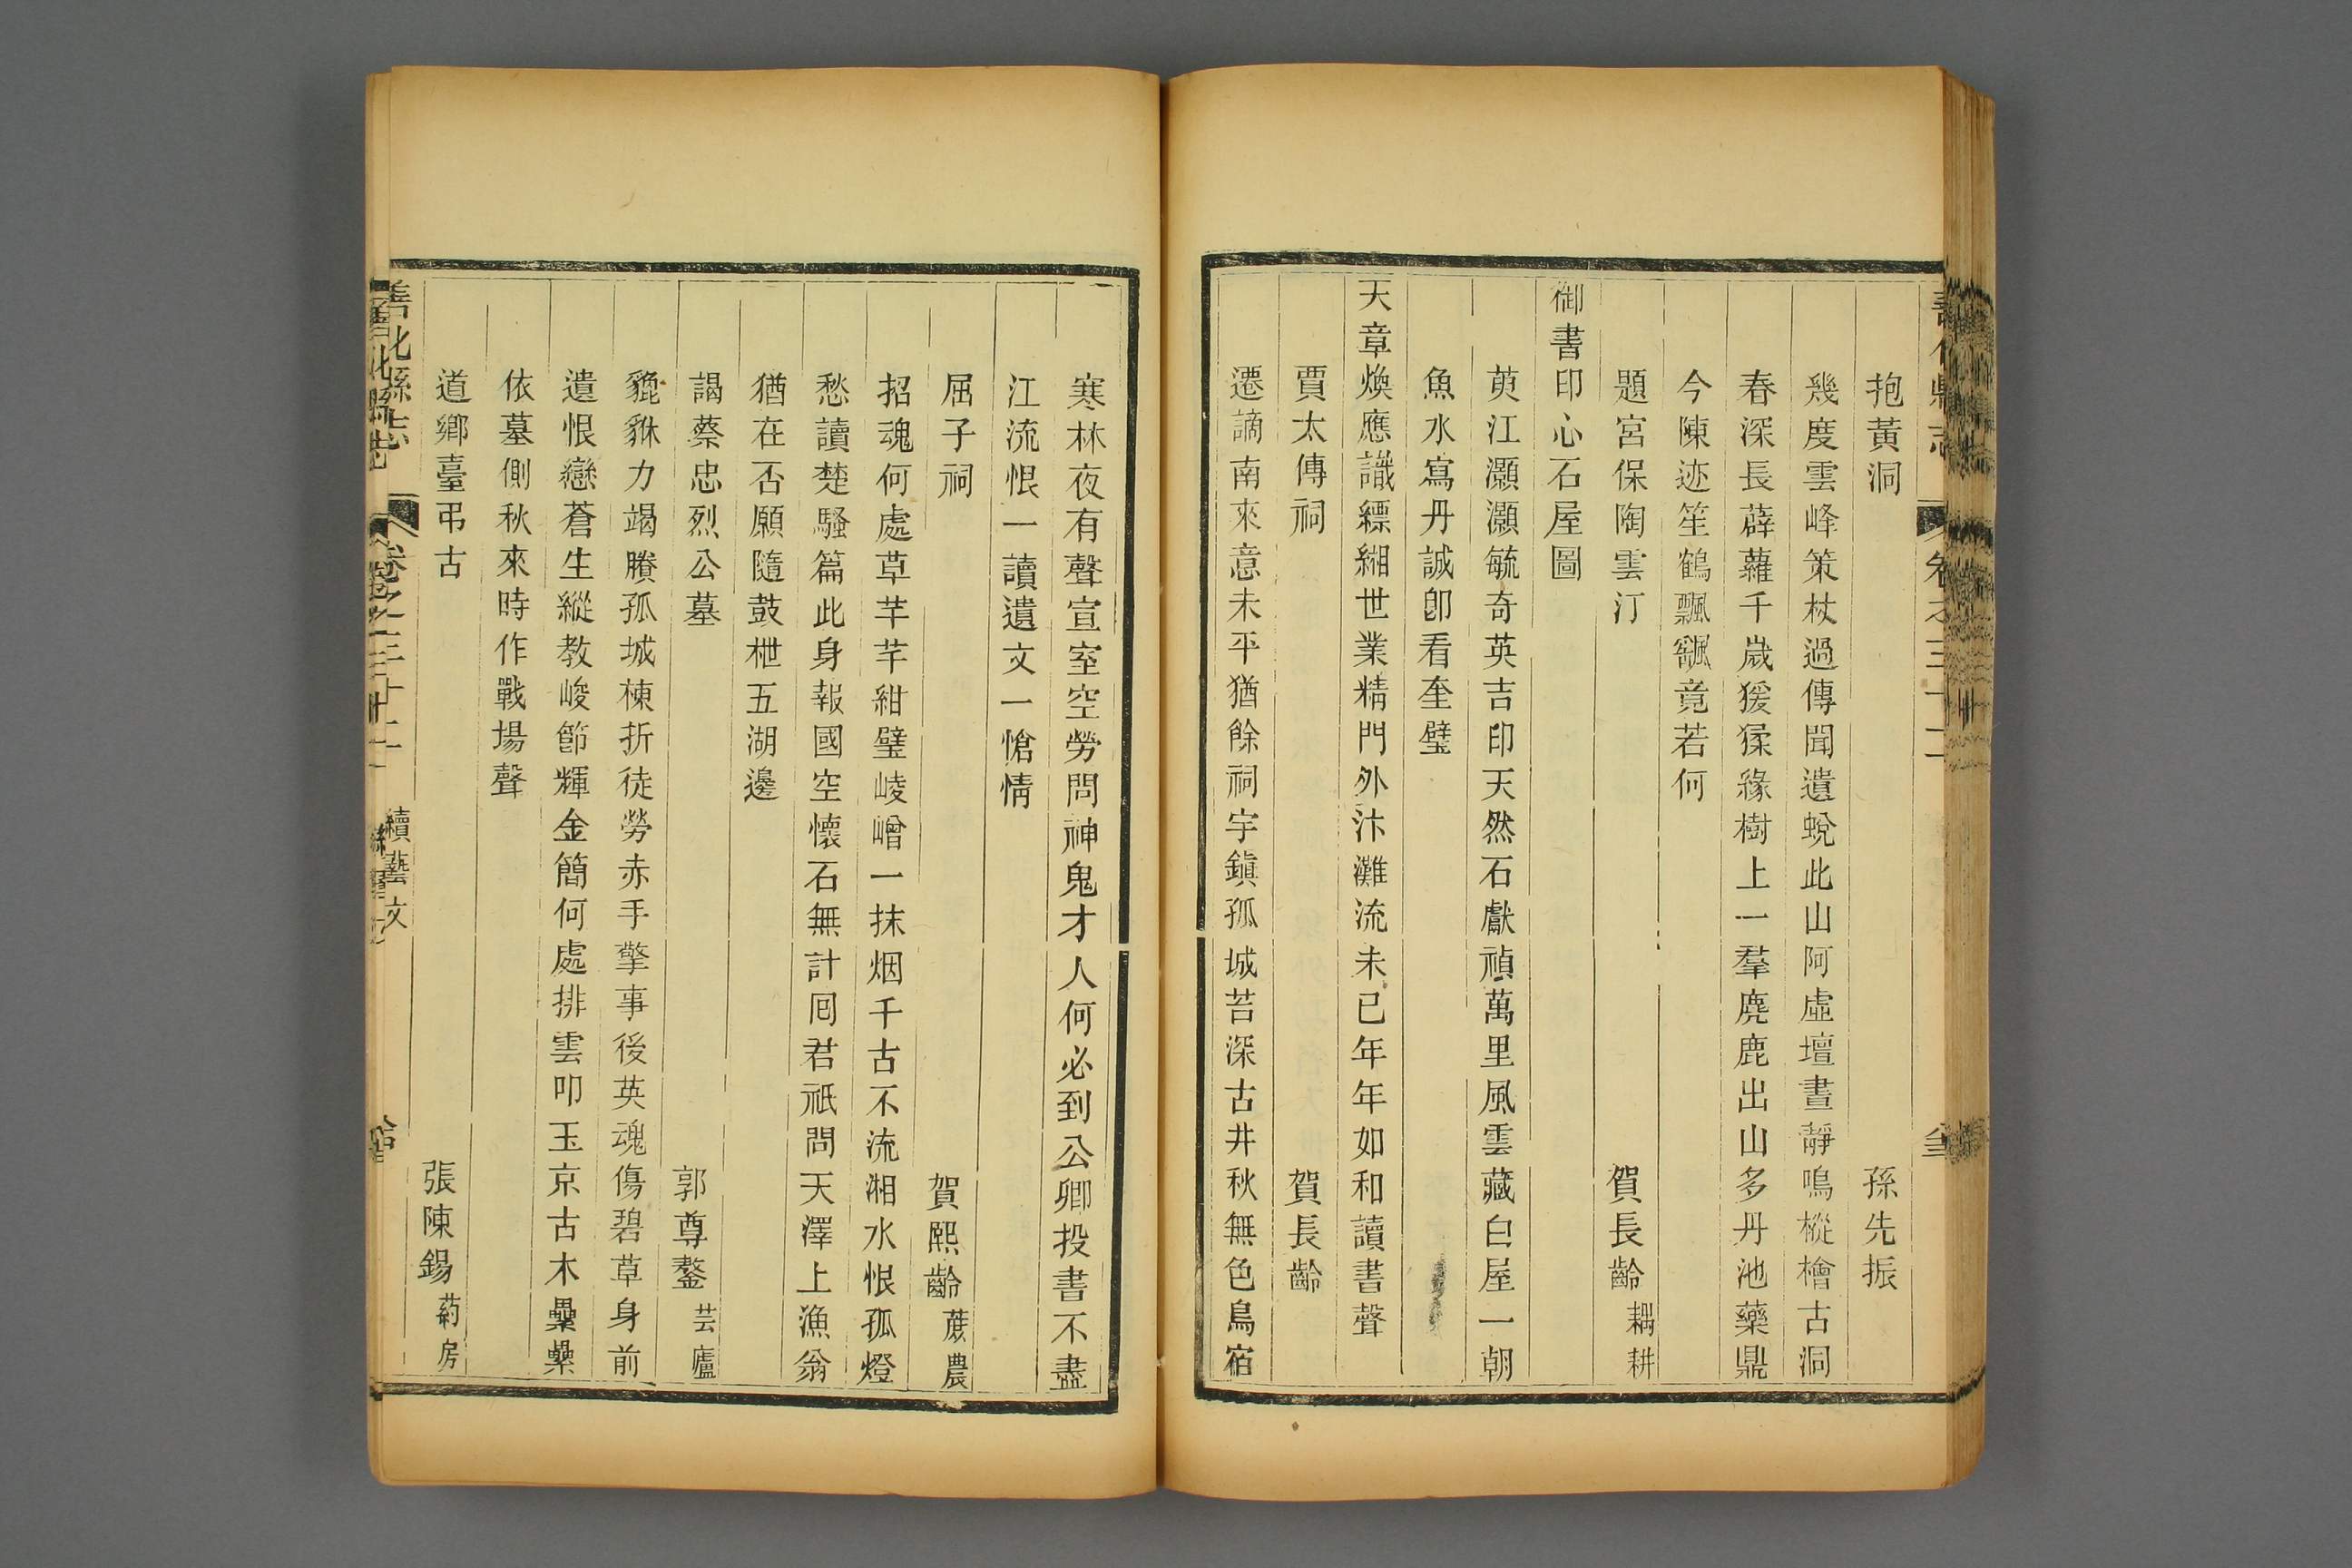 抱黃洞　孫先振
幾度雲峰策杖過傳聞遺蛻此山阿虛壇晝靜鳴樅檜古洞
春深長薜蘿千歲猨猱緣樹上一羣麂鹿出山多丹池藥鼎
今陳迹笙鶴飄飖竟若何
題宮保陶雲汀　賀長齡耦耕
御書印心石屋圖
萸江灝灝毓奇英吉印天然石獻禎萬里風雲藏白屋一朝
魚水寫丹誠卽看奎璧
天章煥應識縹緗世業精門外汴灘流未已年年如和讀書聲
賈太傅祠　賀長齡
遷謫南來意未平猶餘祠宇鎭孤城苔深古井秋無色鳥宿
寒林夜有聲宣室空勞問神鬼才人何必到公卿投書不盡
江流恨一讀遺文一愴情
屈子祠　賀熙齡蔗農
招魂何處草芊芊紺壁崚嶒一抹烟千古不流湘水恨孤燈
愁讀楚騷篇此身報國空懷石無計囘君祇問天澤上漁翁
猶在否願隨鼓枻五湖邊
謁蔡忠烈公墓　郭尊鏊芸廬
貔貅力竭賸孤城棟折徒勞赤手擎事後英魂傷碧草身前
遺恨戀蒼生縱敎峻節輝金簡何處排雲叩玉京古木纍纍
依墓側秋來時作戰場聲
道鄉臺弔古　張陳錫葯房
善化縣志　卷之三十二　續藝文